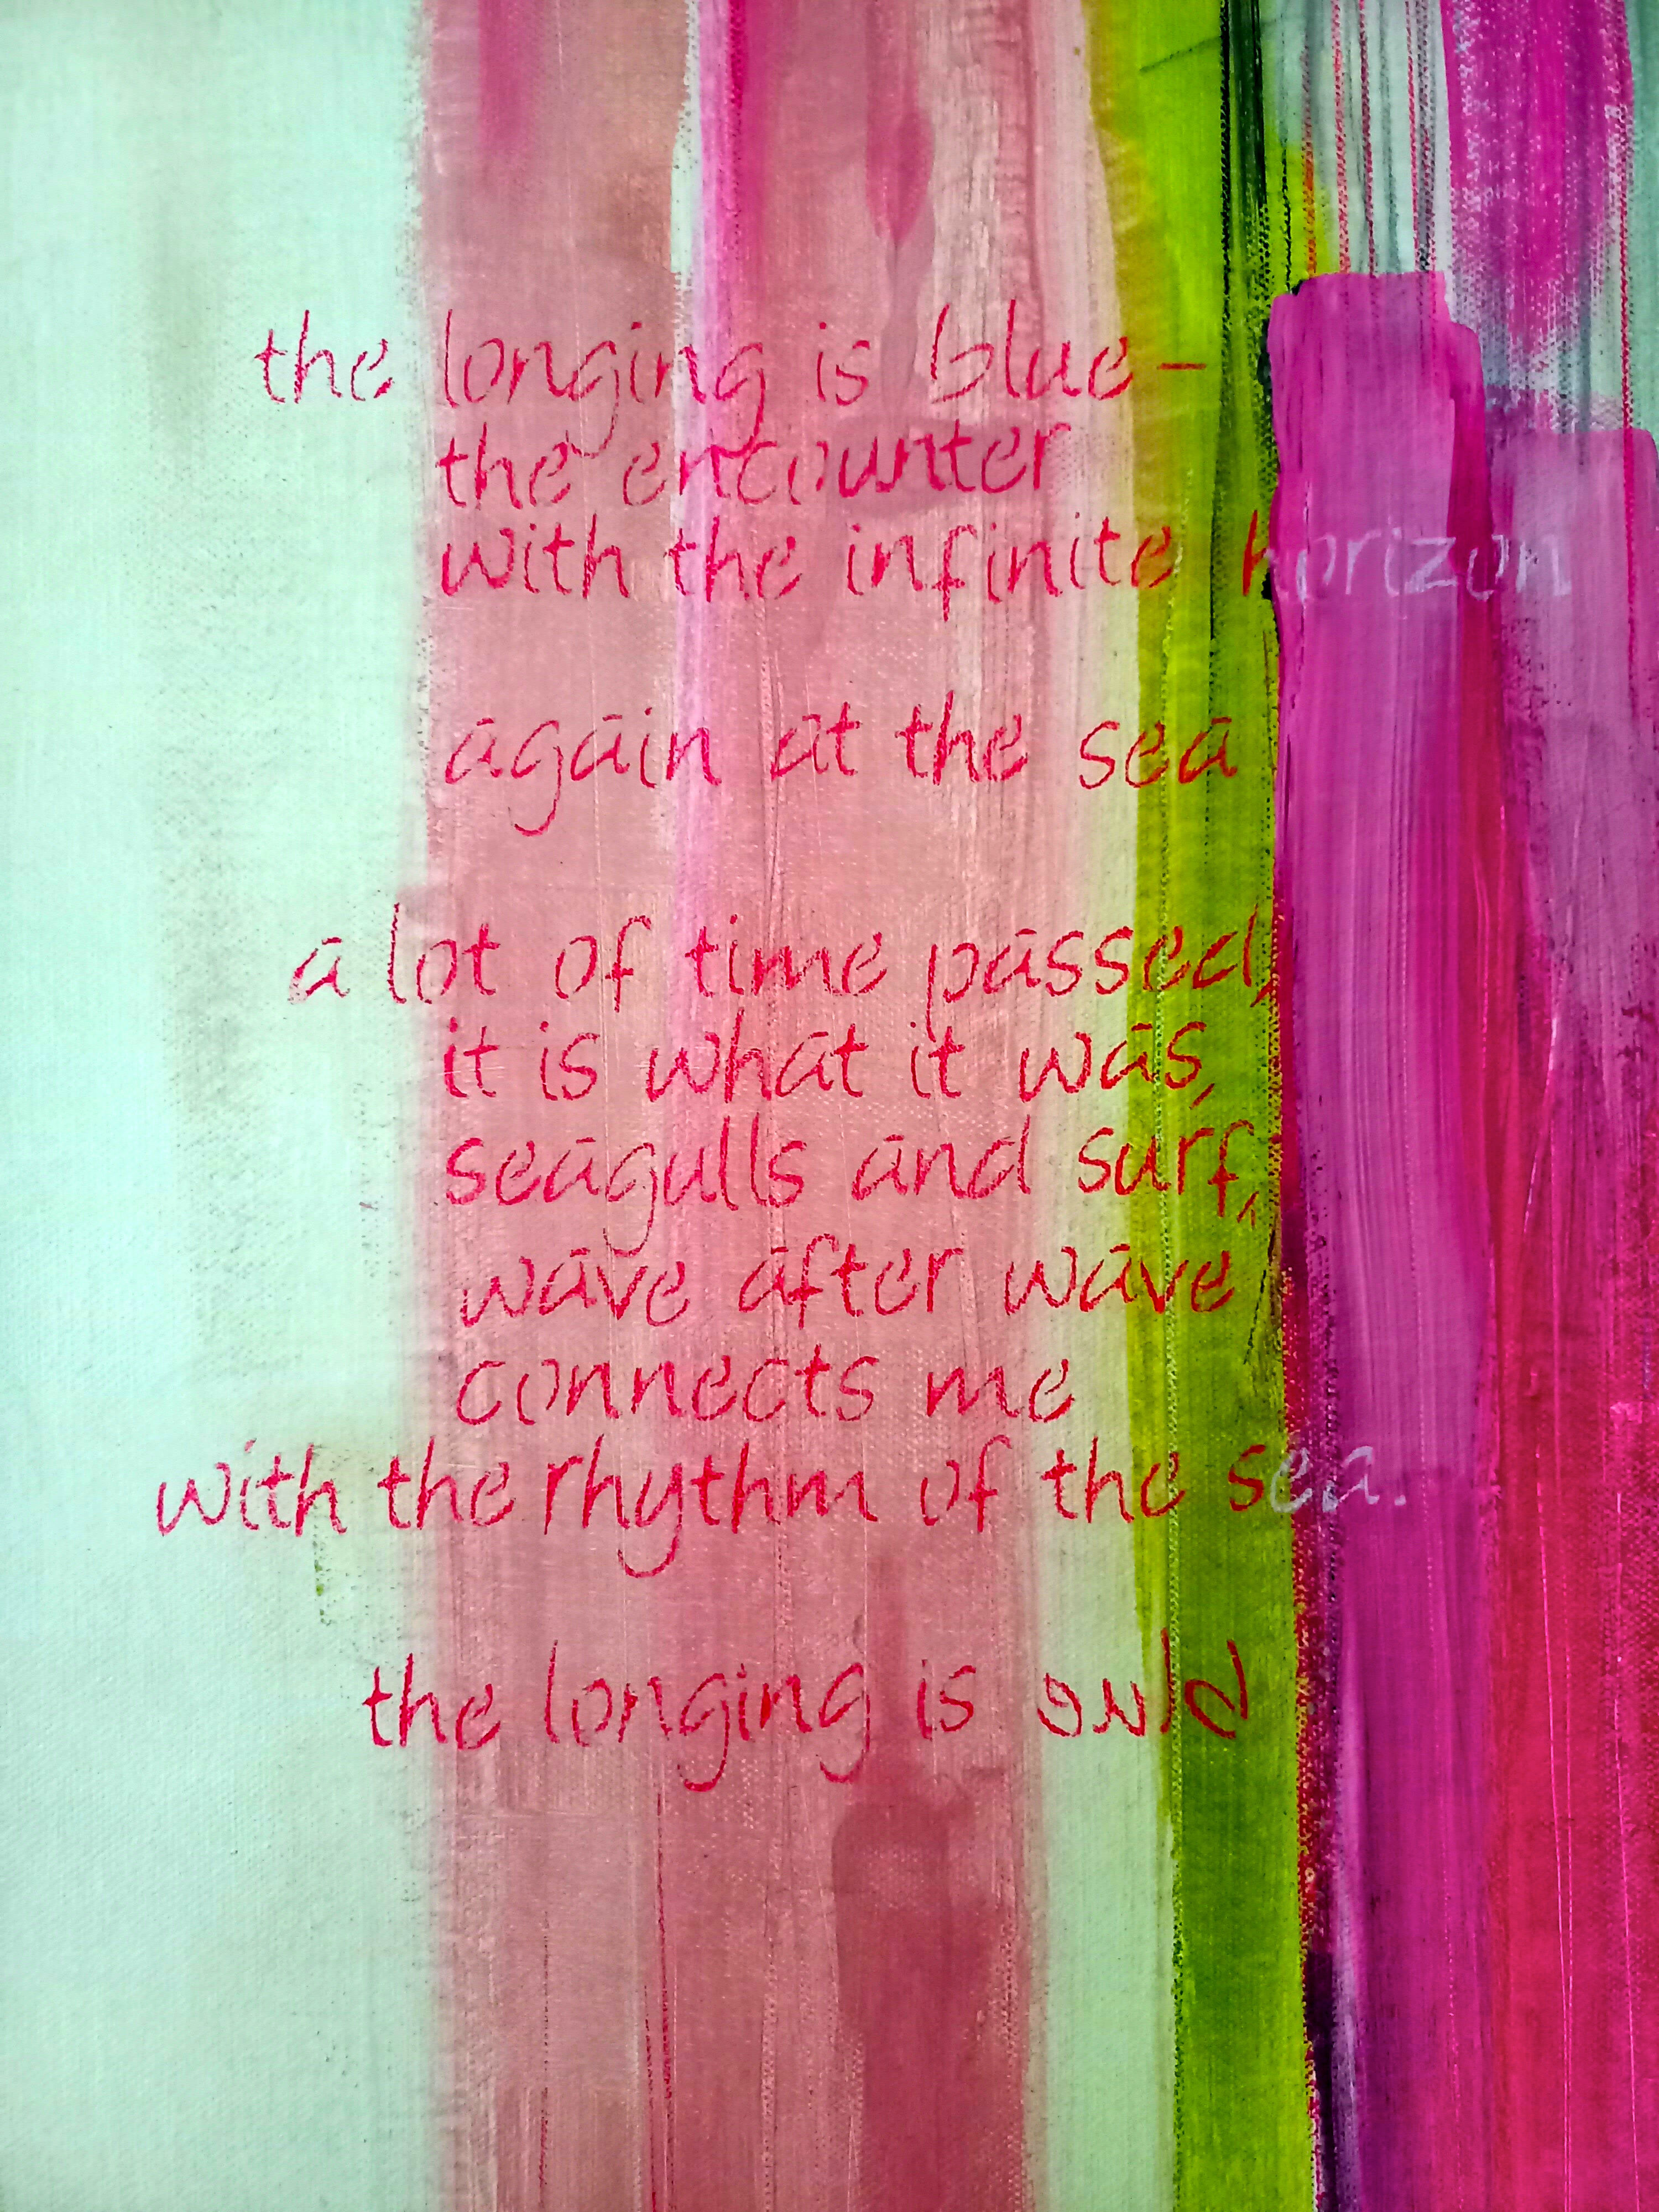 the longing is blue –
the encounter
with the infinite horizon
again at the sea
a lot of time passed,
it is what it was,
seagulls and surf,
wave after wave
connects me
with the rhythm of the sea.
the longing is blue